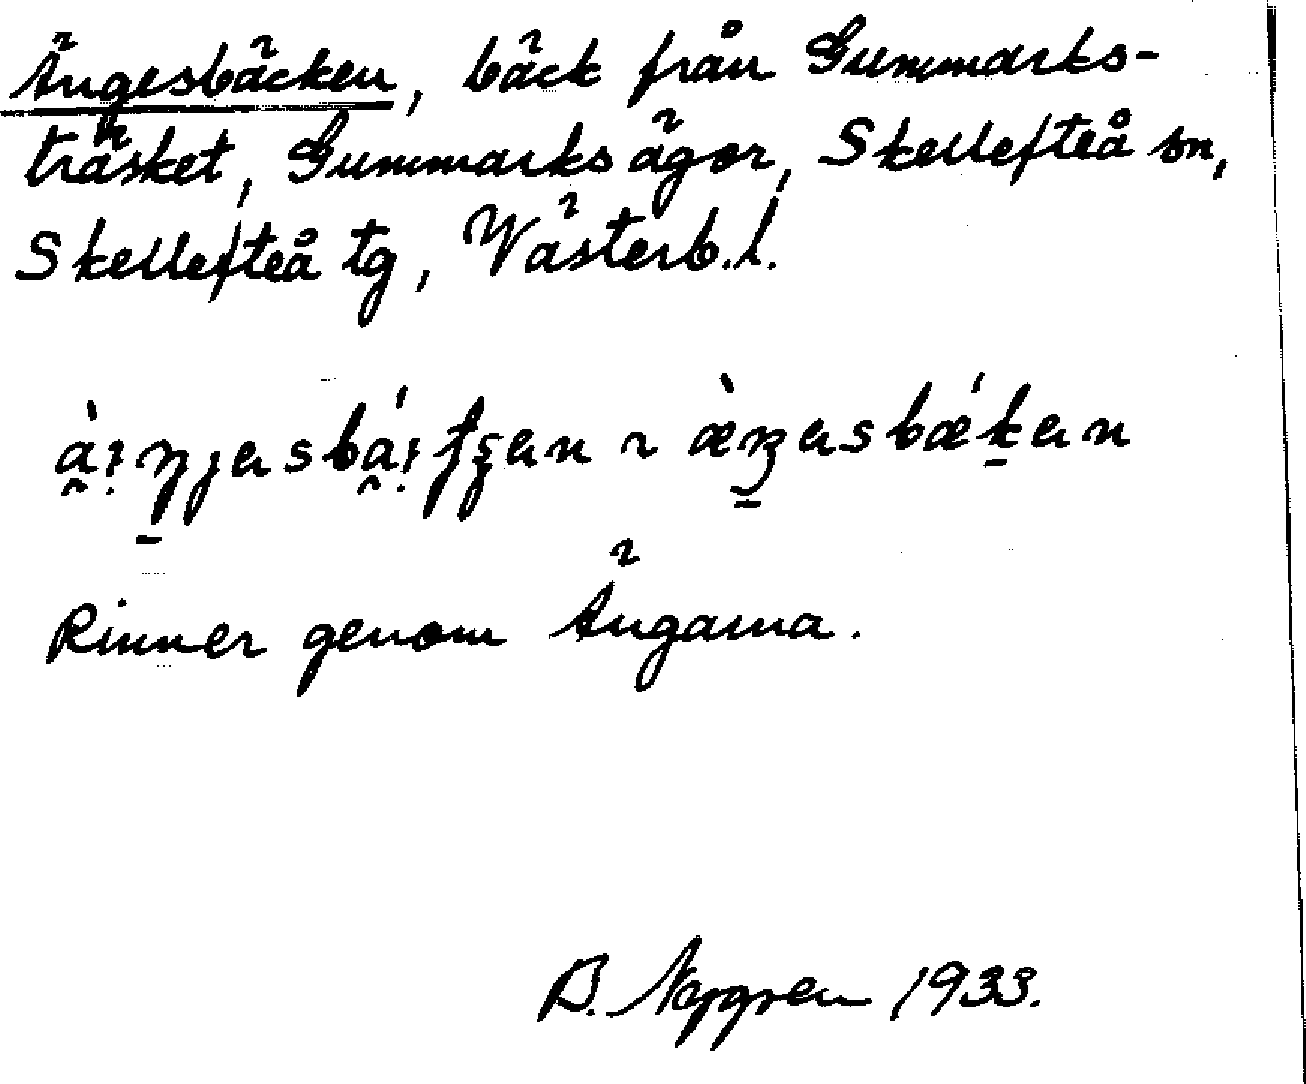 Ängesbäcken, bäck från Gummarks-
träsket, Gummarks ägor, Skellefteå sn,
Skellefteå tg, Västerb. l.
Rinner genom Ängarna.
B. Nygren 1933.